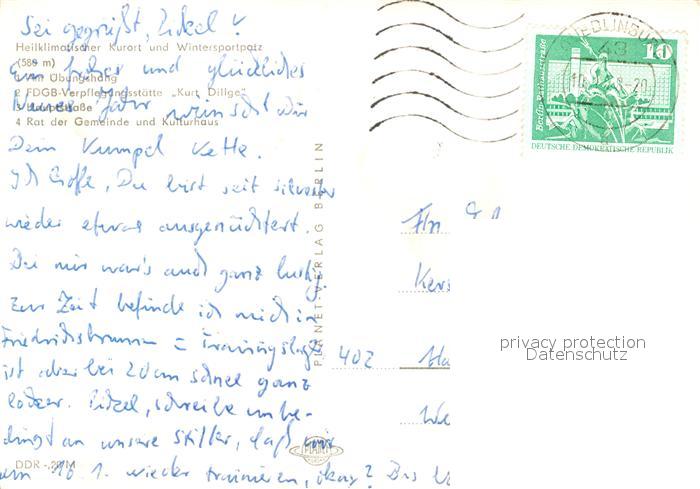 Sei gegrüßt, Zickel!
Heilklimatischer Kurort und Wintersportplatz
(580 m)
1 Am Übungshang
2 FDGB-Verpflegungsstätte „Kurt Dillge"
3 Hauptstraße
4 Rat der Gemeinde und Kulturhaus
Ein frohes und glückliches
neues Jahr wünscht dir
Dein Kumpel Kette.
Ich hoffe, Du bist seit silvester
wieder etwas ausgenüchtert.
Bei mir war's auch ganz lustig.
Zur Zeit befinde ich mich in
Friedrichsbrunn = Trainingslager
ist aber bei 20cm schnee ganz
locker. Zickel, schreibe unbe-
dingt an unsere Stiller, daß wir
am 10.1. wieder trainieren, okay? Bis
DDR -,20/M
PLANET-VERLAG BERLIN
PLANET
QUEDLINBURG
43
10
Berlin-Rathausstraße
DEUTSCHE DEMOKRATISCHE REPUBLIK
Kers
402 Ha
We
privacy protection
Datenschutz